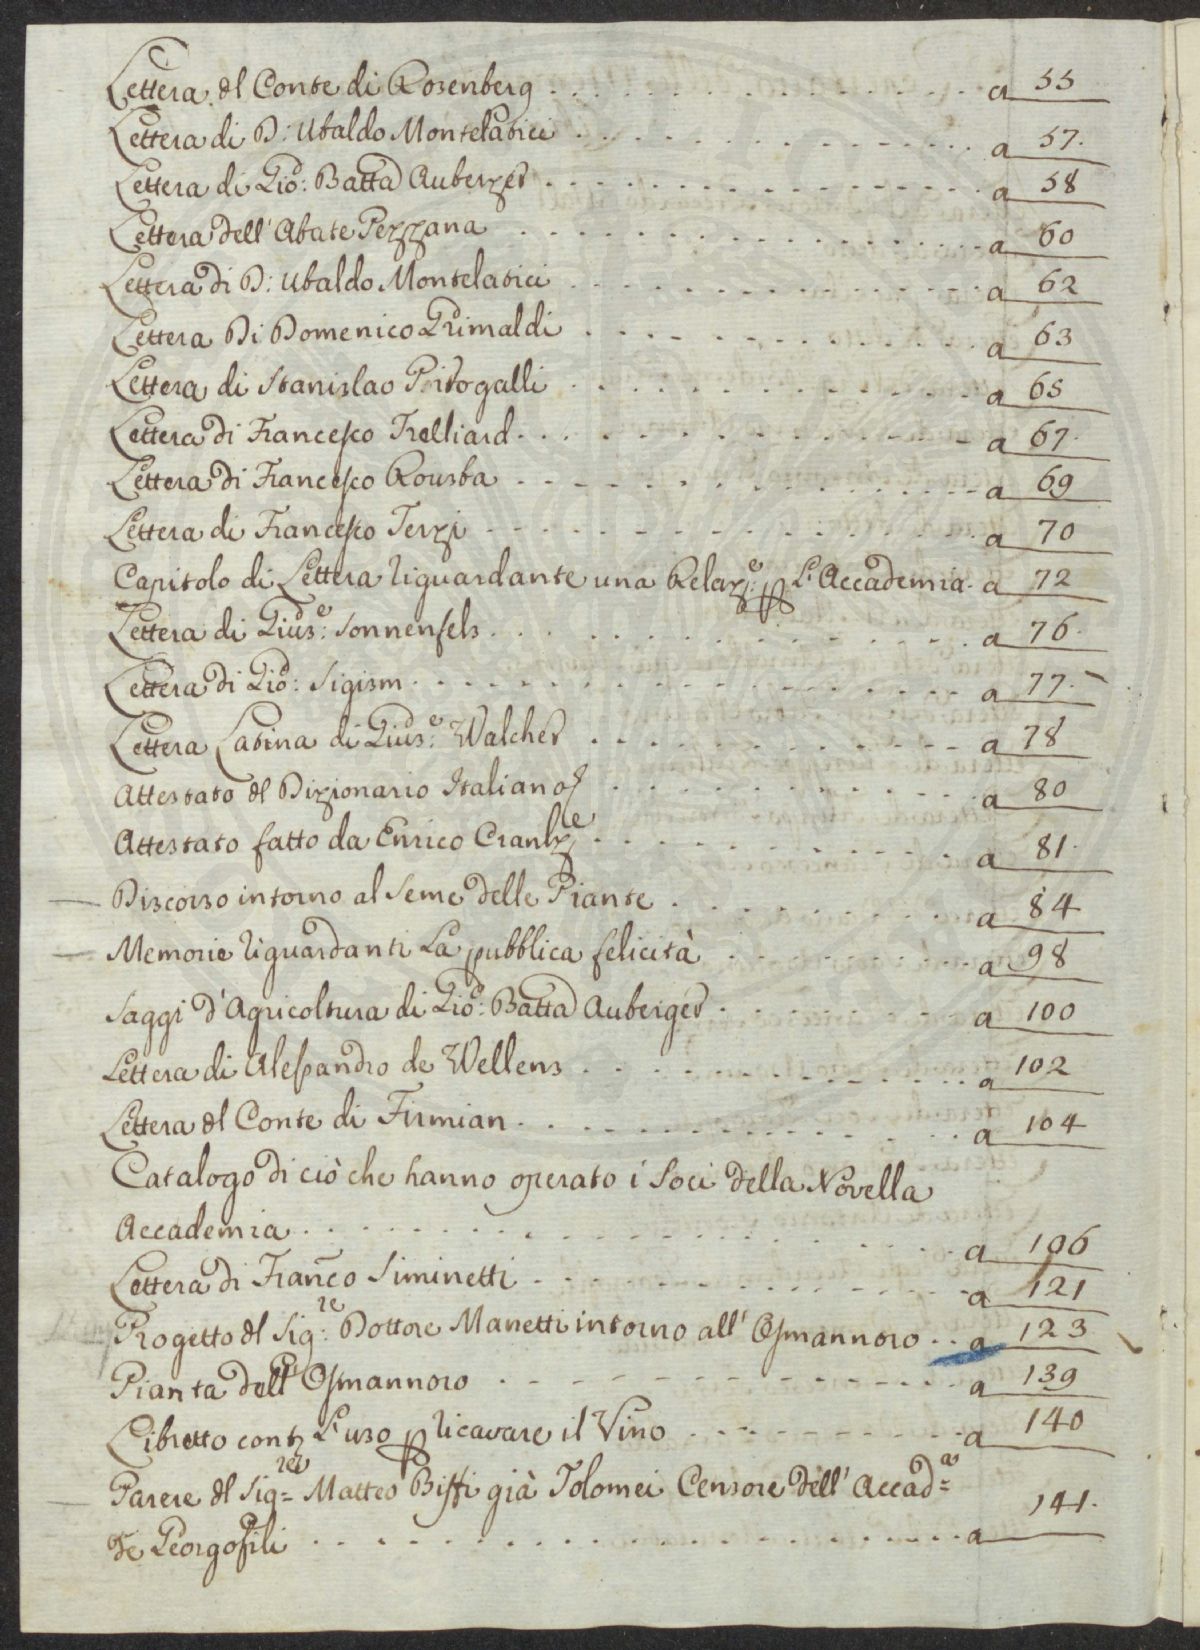 Lettera del Conte di Rosenberg . . . . . . . . . . . . . . a 55
Lettera di D: Ubaldo Montelatici . . . . . . . . . . . . . . a 57.
Lettera di Gio: Batta Auberger . . . . . . . . . . . . . . a 58
Lettera dell' Abate Pezzana . . . . . . . . . . . . . . a 60
Lettera di D: Ubaldo Montelatici . . . . . . . . . . . . . . a 62
Lettera Di Domenico Grimaldi . . . . . . . . . . . . . . a 63
Lettera di Stanislao Pritogalli . . . . . . . . . . . . . . a 65
Lettera di Francesco Trelliard . . . . . . . . . . . . . . a 67.
Lettera di Francesco Rousba . . . . . . . . . . . . . . a 69
Lettera di Francesco Terzi . . . . . . . . . . . . . . a 70
Capitolo di Lettera riguardante una Relaz:e p L'Accademia. a 72
Lettera di Gius:e Sonnenfels . . . . . . . . . . . . . . a 76.
Lettera di Gio: Sigism . . . . . . . . . . . . . . a 77.
Lettera Latina di Gius:e Walcher . . . . . . . . . . . . . . a 78
Attestato del Dizionario Italiano . . . . . . . . . . . . . . a 80
Attestato fatto da Enrico Crantz . . . . . . . . . . . . . . a 81.
Discorso intorno al Seme delle Piante . . . . . . . . . . a 84
Memorie riguardanti La pubblica felicità . . . . . . . . . . a 98
Saggi d'Agricoltura di Gio: Batta Auberger . . . . . . . . a 100
Lettera di Alessandro de Wellens . . . . . . . . . . . . a 102
Lettera del Conte di Firmian . . . . . . . . . . . . . . a 104
Catalogo di ciò che hanno operato i Soci della Novella
Accademia . . . . . . . . . . . . . . a 106
Lettera di Franco Siminetti . . . . . . . . . . . . . . a 121
Progetto del Sig:re Dottore Manetti intorno all' Osmannoro . . a 123
Pianta dell' Osmannoro . . . . . . . . . . . . . . a 139
Libretto cont L'uso p ricavare il Vino . . . . . . . . . . a 140
Parere del Sig=re Matteo Biffi già Tolomei Censore dell' Accad=a
de Georgofili . . . . . . . . . . . . . . a 141.